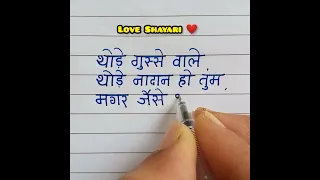 Love Shayari ❤️
थोड़े गुस्से वाले,
थोड़े नादान हो तुम,
मगर जैसे